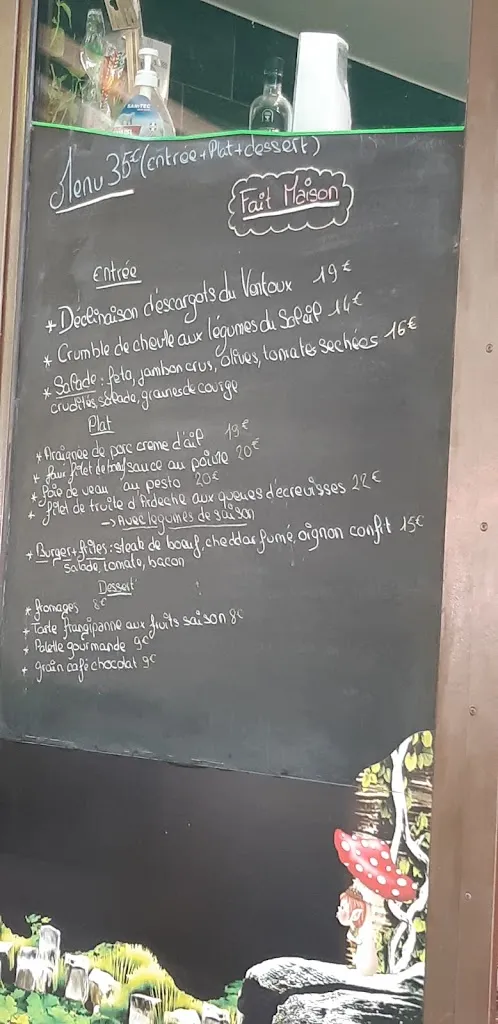 SANITEC
Menu 35€ (entrée + Plat + dessert)
Fait Maison
Entrée
* Déclinaison d'escargots du Ventoux 19€
* Crumble de chèvre aux légumes du Soleil 14€
* Salade : feta, jambon crus, olives, tomates sechées 16€
crudités, salade, graines de courge
Plat
* Araignée de porc creme d'ail 19€
* faux filet de boeuf sauce au poivre 20€
* foie de veau au pesto 20€
* filet de truite d'Ardeche aux queues d'ecrevisses 22€
→ Avec legumes de saison
* Burger + frites : steak de boeuf, cheddar fumé, oignon confit 15€
salade, tomate, bacon
Dessert
* fromages 8€
* Tarte frangipanne aux fruits saison 8€
* Palette gourmande 9€
* grain café chocolat 9€